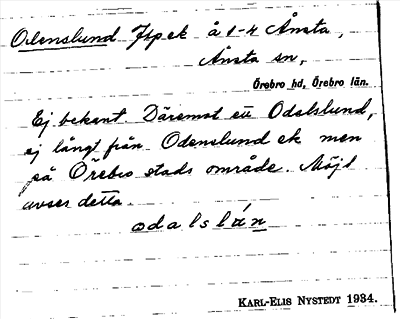 Odenslund Jkp ek å 1-4 Ånsta,
Ånsta sn,
Örebro hd, Örebro län.
Ej bekant. Däremot ett Odalslund,
ej långt från Odenslund ek men
på Örebro stads område. Möjl
avses detta.
odalslán
KARL-ELIS NYSTEDT 1934.